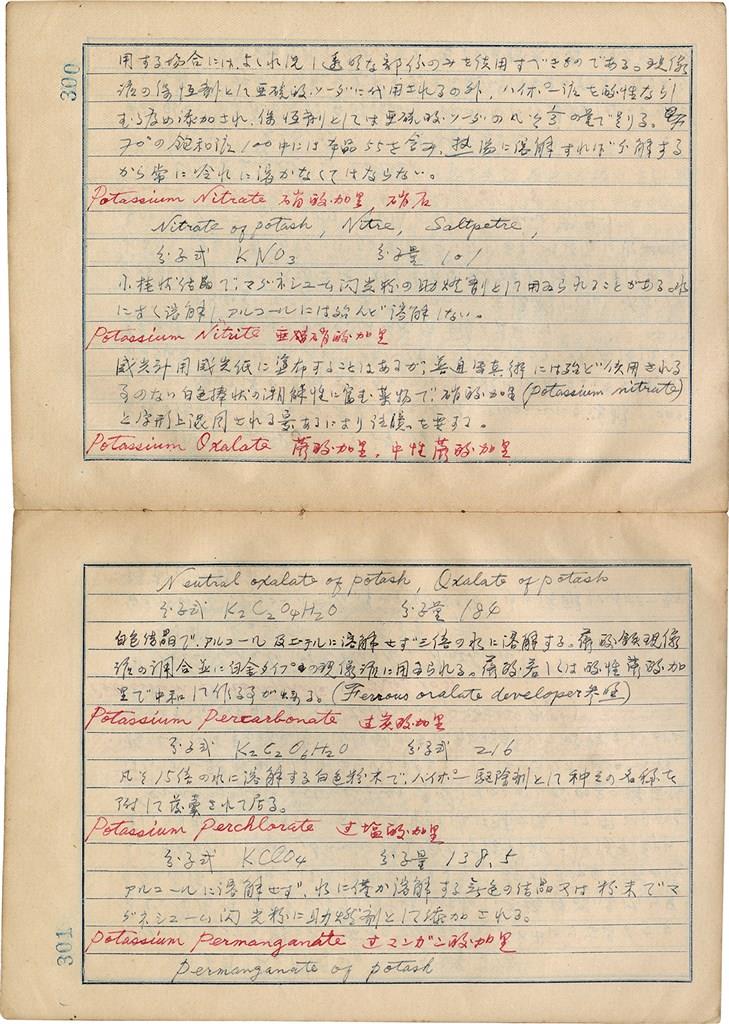 300
用する場合には、よくれ洗し透明な部分のみを使用すべきものである。現像
液の保恒剤として亜硫酸ソーダに代用されるの外、ハイポー液を酸性ならし
むる為め添加され、保恒剤としては亜硫酸ソーダの凡そ の量で足りる。
の飽和液100中には本品55を含み、熱湯に溶解すれば分解する
から常に冷水に溶かなくてはならない。
Potassium Nitrate 硝酸加里, 硝石
Nitrate of potash, Nitre, Saltpetre,
分子式 KNO3 分子量 101
小柱状結晶で、マグネシューム閃光粉の助燃剤として用ゐられることがある。水
によく溶解し、アルコールには殆んど溶解しない。
Potassium Nitrite 亜硝酸加里
感光計用感光紙に塗布することはあるが、普通写真術には殆ど使用される
ものない白色棒状の潮解性に富む薬物で、硝酸加里(potassium nitrate)
と字形上混同される あるにより注意を要する。
Potassium Oxalate 蓚酸加里, 中性蓚酸加里
Neutral oxalate of potash, Oxalate of potash
分子式 K2C2O4H2O 分子量 184
白色結晶で、アルコール及エーテルに溶解せず三倍の水に溶解する。蓚酸鉄現像
液の調合並に白金タイプの現像液に用ゐられる。蓚酸若しくは酸性蓚酸加
里で中和して作る事が出来る。(Ferrous oxalate developer参照)
Potassium Percarbonate 过炭酸加里
分子式 K2C2O6H2O 分子式 216
凡そ15倍の水に溶解する白色粉末で、ハイポー駆除剤として種々の名称を
附して發賣されて居る。
Potassium Perchlorate 过塩酸加里
分子式 KClO4 分子量 138.5
アルコールに溶解せず、水に僅か溶解する無色の結晶又は粉末でマ
グネシューム閃光粉に助燃剤として添加される。
301
Potassium Permanganate 过マンガン酸加里
Permanganate of potash